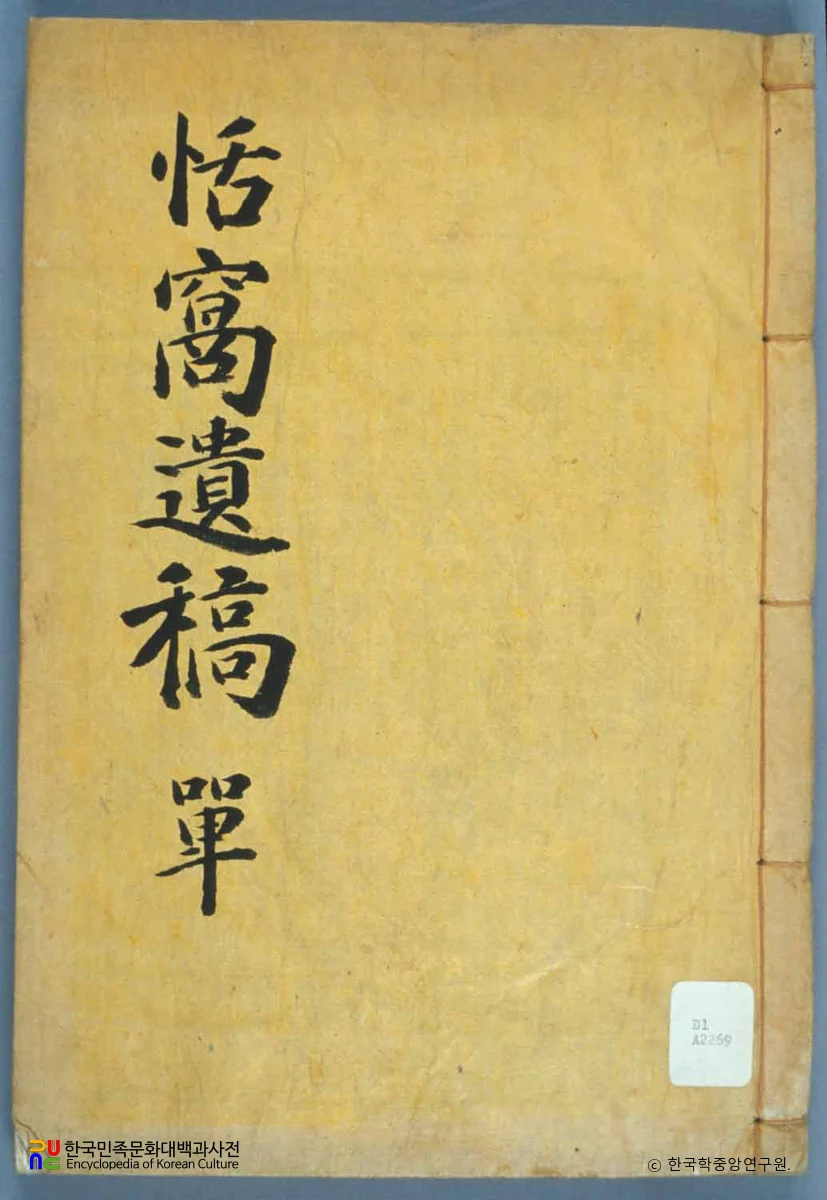 恬窩遺稿 單
D1
A2269
한국민족문화대백과사전
Encyclopedia of Korean Culture
© 한국학중앙연구원.